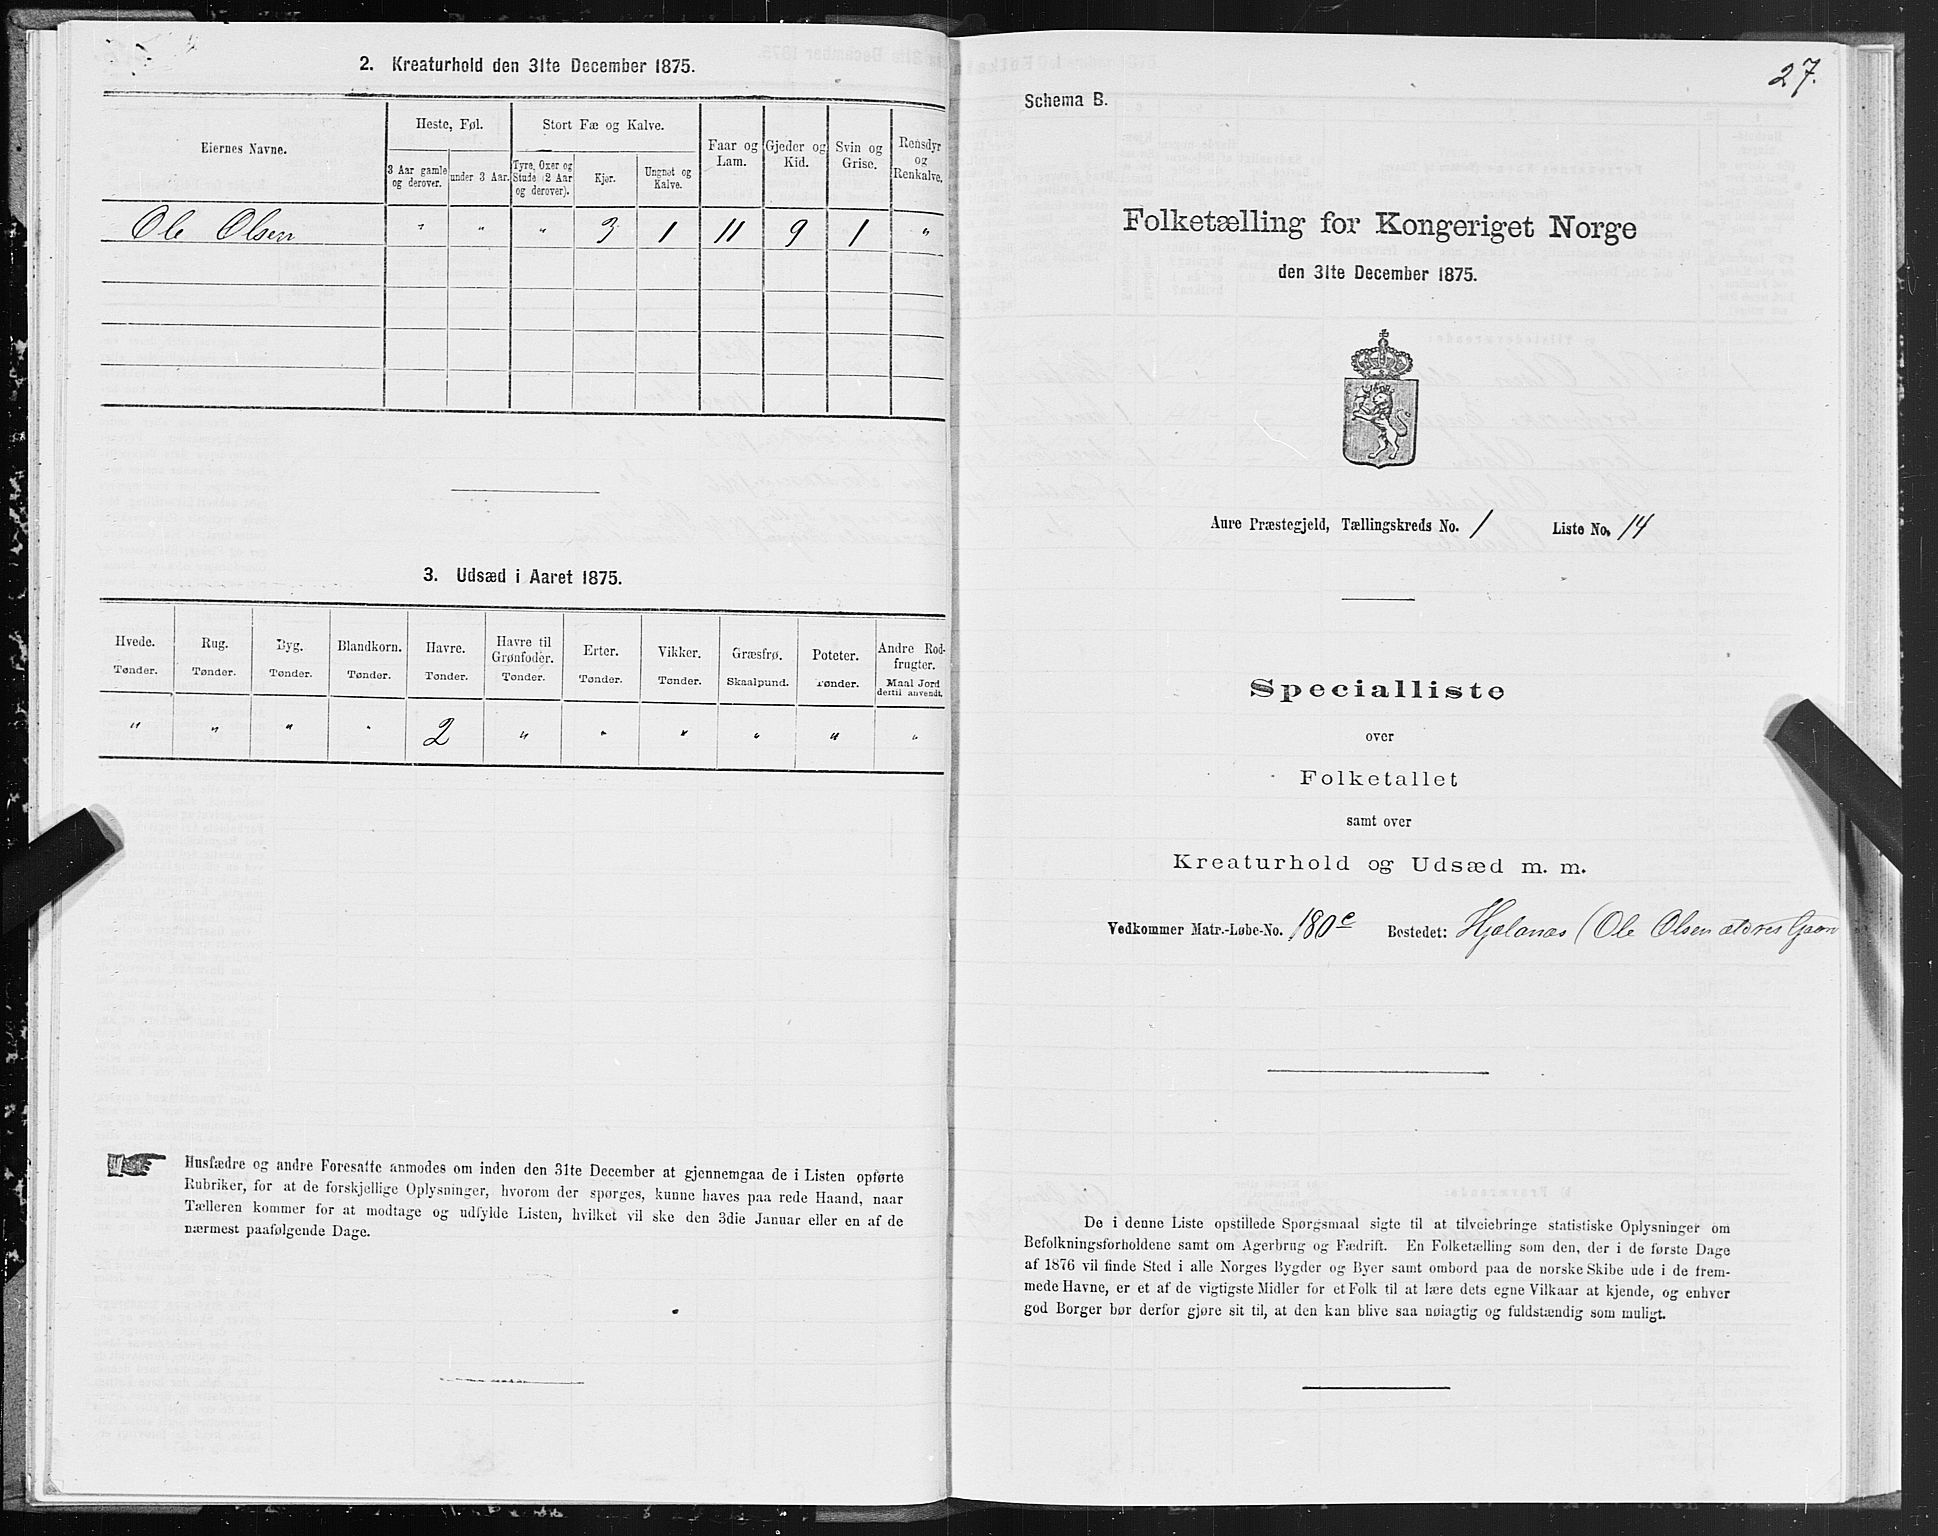 2. Kreaturhold den 31te December 1875.
Eiernes Navne.
Heste, Føl.
Stort Fæ og Kalve.
Faar og Lam.
Gjeder og Kid.
Svin og Grise.
Rensdyr og Renkalve.
3 Aar gamle og derover.
under 3 Aar.
Tyre, Oxer og Stude (2 Aar og derover).
Kjør.
Ungnøt og Kalve.
Ole Olsen " " " 3 1 11 9 1 "
3. Udsæd i Aaret 1875.
Hvede. Rug. Byg. Blandkorn. Havre. Havre til Grønfoder. Erter. Vikker. Græsfrø. Poteter. Andre Rodfrugter.
Tønder. Tønder. Tønder. Tønder. Tønder. Tønder. Tønder. Tønder. Skaalpund. Tønder. Maal Jord dertil anvendt.
" " " " 2 " " " " " "
Husfædre og andre Foresatte anmodes om inden den 31te December at gjennemgaa de i Listen opførte
Rubriker, for at de forskjellige Oplysninger, hvorom der spørges, kunne haves paa rede Haand, naar
Tælleren kommer for at modtage og udfylde Listen, hvilket vil ske den 3die Januar eller en af de
nærmest paafølgende Dage.
27.
Schema B.
Folketælling for Kongeriget Norge
den 31te December 1875.
Aure Præstegjeld, Tællingskreds No. 1 Liste No. 14
Specialliste
over
Folketallet
samt over
Kreaturhold og Udsæd m. m.
Vedkommer Matr.-Løbe-No. 180c Bostedet: Hjelanes (Ole Olsen ældres Gaard
De i denne Liste opstillede Spørgsmaal sigte til at tilveiebringe statistiske Oplysninger om
Befolkningsforholdene samt om Agerbrug og Fædrift. En Folketælling som den, der i de første Dage
af 1876 vil finde Sted i alle Norges Bygder og Byer samt ombord paa de norske Skibe ude i de frem-
mede Havne, er et af de vigtigste Midler for et Folk til at lære dets egne Vilkaar at kjende, og enhver
god Borger bør derfor gjøre sit til, at den kan blive saa nøiagtig og fuldstændig som muligt.